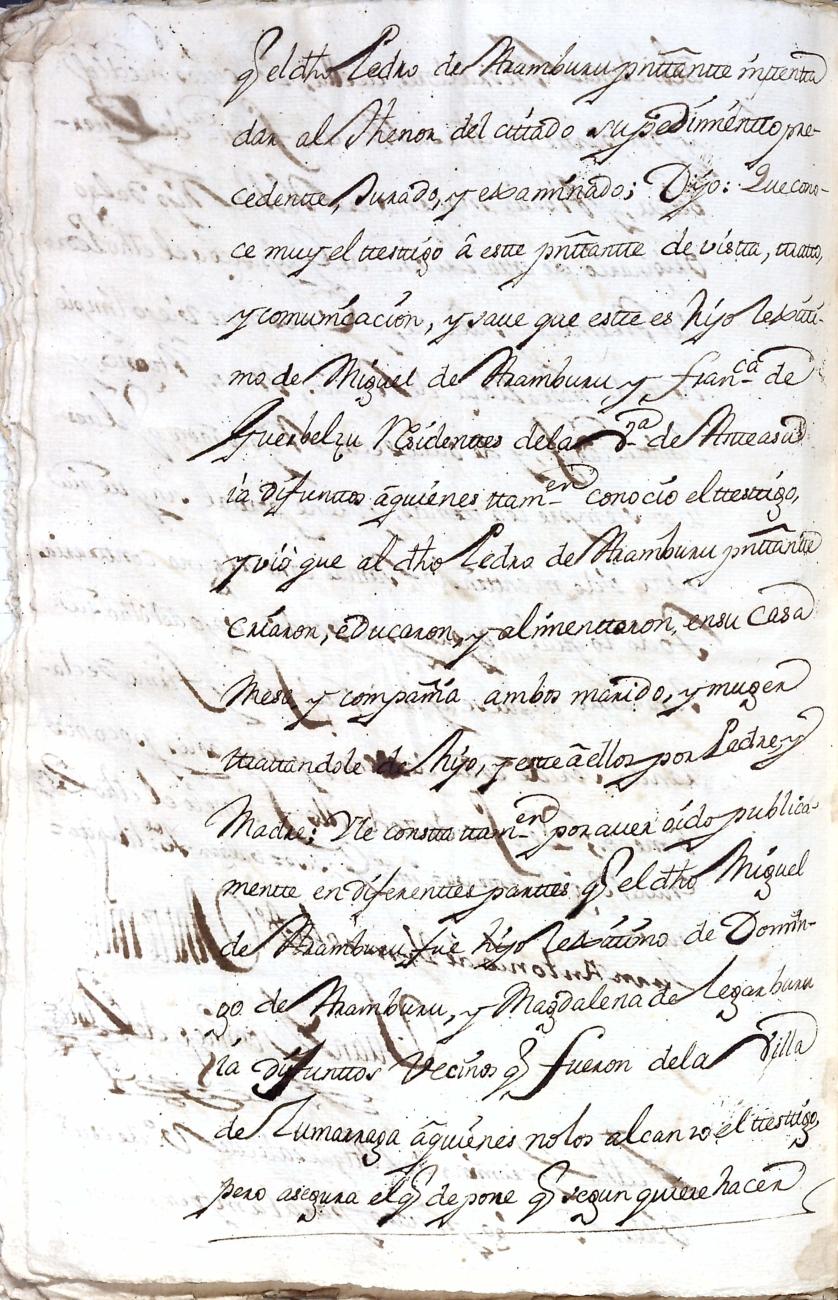 q̃ el dho Pedro de Aramburu pnttantte inttenta
dar al thenor del cittado su pedimentto pre-
cedentte, Jurado, y examinado; Dijo: Que cono-
ce muy el ttesttigo â estte pnttantte de vistta, tratto,
y comunicacion, y save que estte es hijo lexiti-
mo de Miguel de Aramburu y Fran.ca de
Guerbelzu Residenttes de la V.a de Anteasu
ia difunttos âquienes ttam.en conocio el ttesttigo,
y vió que al dho Pedro de Aramburu pnttantte
criaron, êducaron, y alimenttaron, en su Casa
Mesa y compañia ambos marido, y muger
ttrattandole de hijo, y estte âellos por Padre, y
Madre; Yle constta ttam.en por aver oído publica-
mentte en diferenttes parttes q̃ el dho Miguel
de Aramburu fue hijo lexitimo de Domin-
go de Aramburu, y Magdalena de Legarburu
ia difunttos Vecinos q̃ fueron de la Villa
de Zumarraga âquienes no los alcanzo el ttesttigo,
pero asegura el q̃ depone q̃ segun quiere hacer